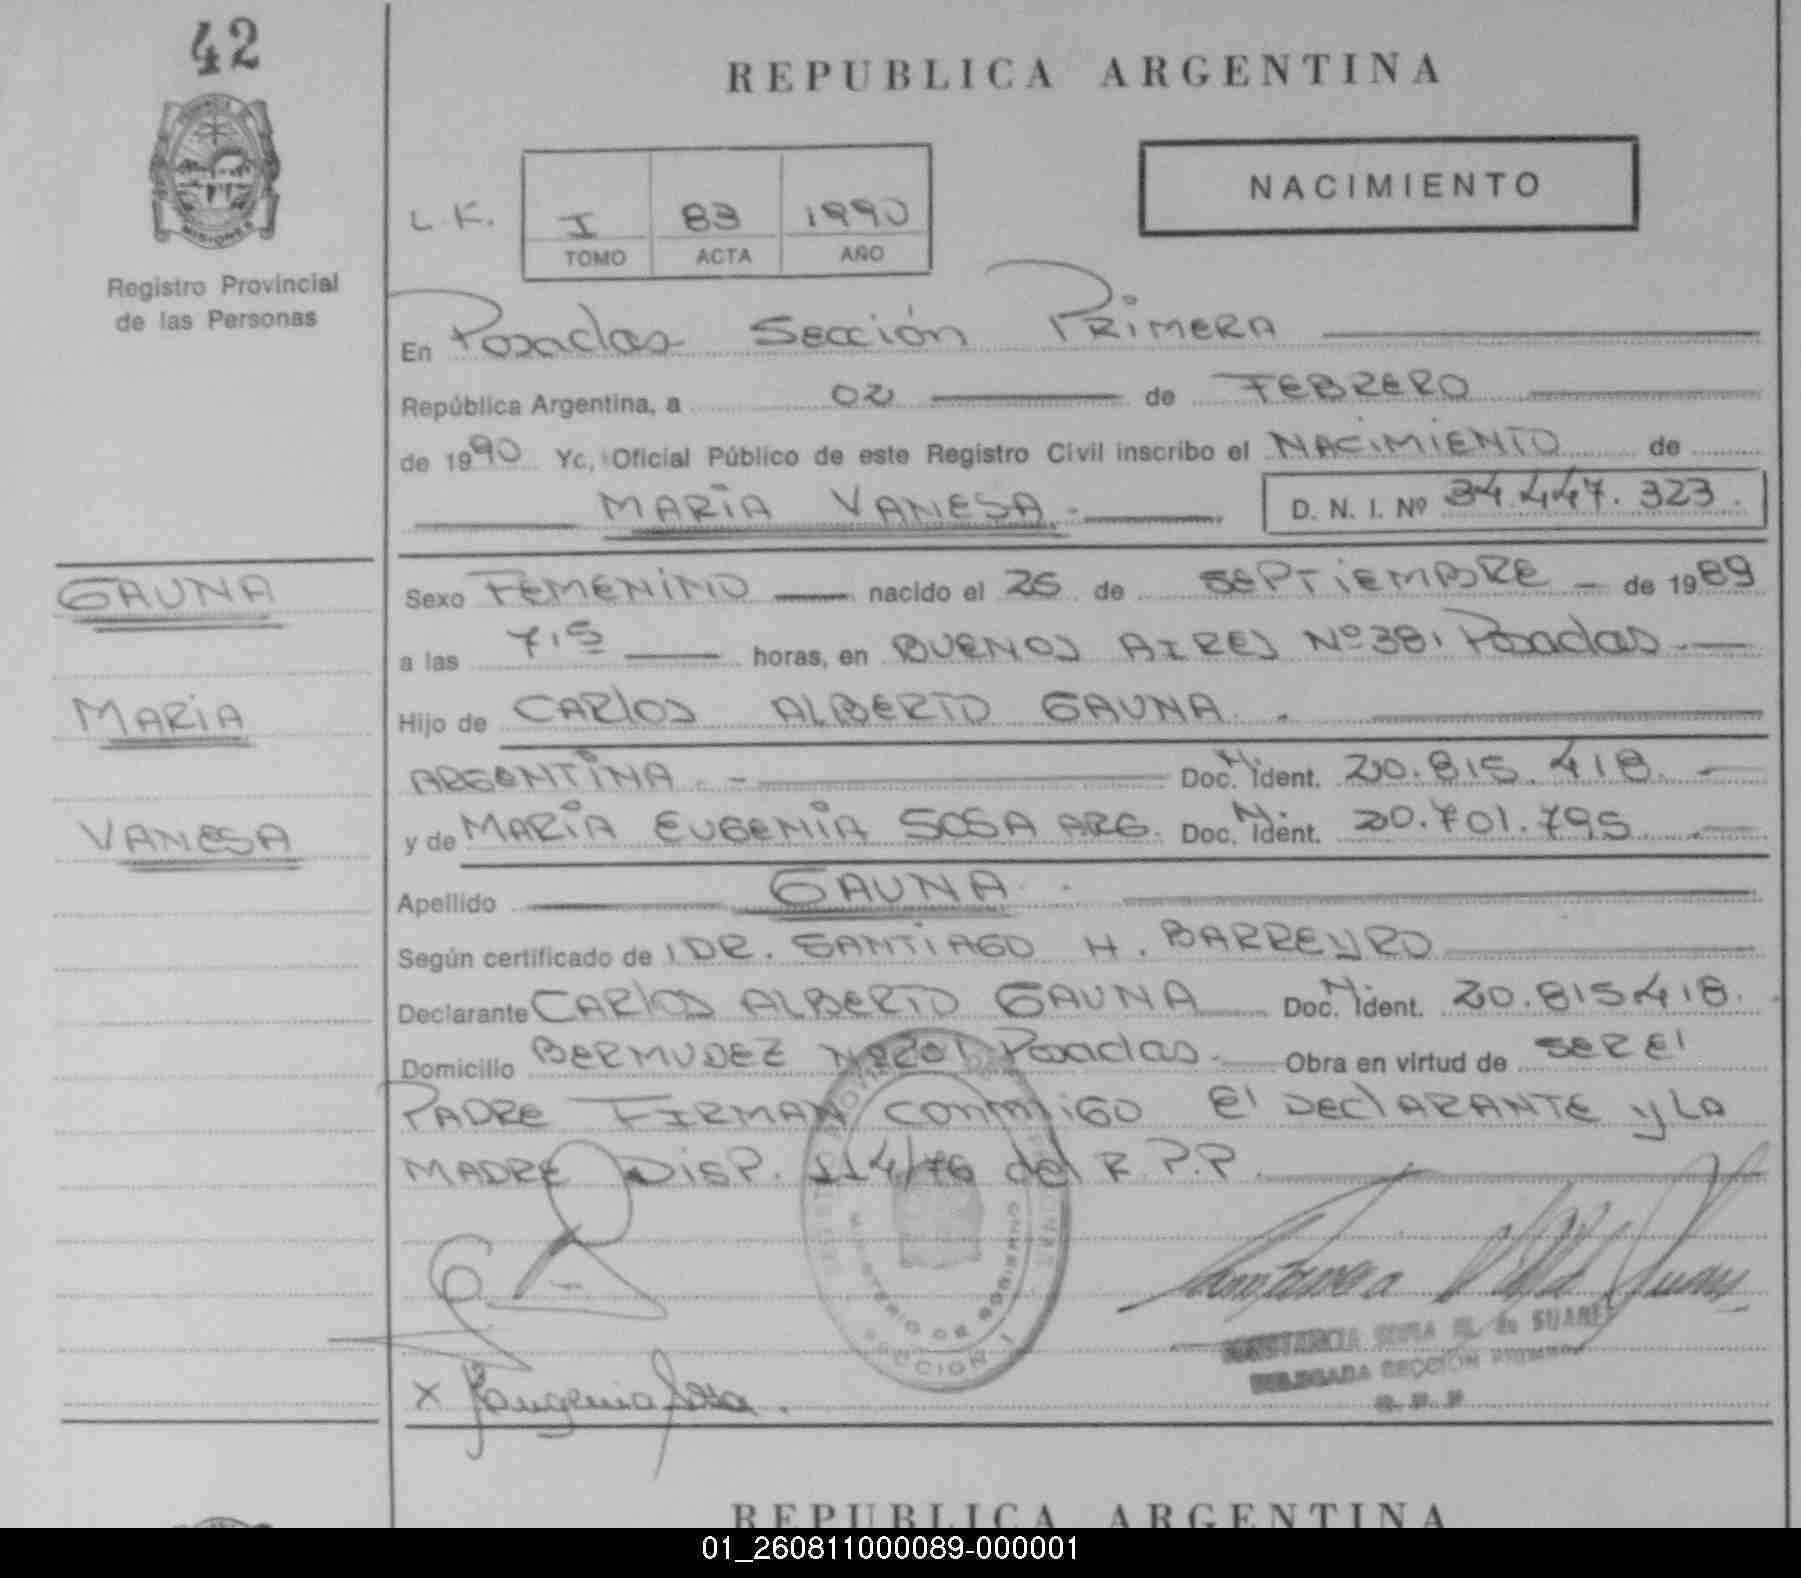 42
REPUBLICA ARGENTINA
NACIMIENTO
L.K. I 83 1990
TOMO ACTA AÑO
MISIONES
Registro Provincial
de las Personas
En Posadas Sección Primera
República Argentina, a 02 de FEBRERO
de 1990 Yo, Oficial Público de este Registro Civil inscribo el NACIMIENTO de
MARIA VANESA.
D. N. I. Nº 34.447.323.
GAUNA
MARIA
VANESA
Sexo FEMENINO nacido el 26 de SEPTIEMBRE de 1989
a las 7,15 horas, en BUENOS AIRES Nº38, Posadas
Hijo de CARlOS ALBERTO GAUNA.
ARGENTINA. Doc. Ident. 20.815.418.
y de MARIA EUGENIA SOSA ARG. Doc. Ident. 20.701.795
Apellido GAUNA.
Según certificado de DR. SANTIAGO H. BARREYRO
Declarante CARlOS ALBERTO GAUNA Doc. Ident. 20.815418.
Domicilio BERMUDEZ Nº201 Posadas. Obra en virtud de SER El
PADRE FIRMAN CONMIGO El DEClARANTE y LA
MADRE DISP. 114/76 del R.P.P.
MINISTERIO DE GOBIERNO
SECCION I
X M Eugenia Sosa.
DELEGADA SECCION PRIMERA
R. P. P
REPUBLICA ARGENTINA
01_260811000089-000001